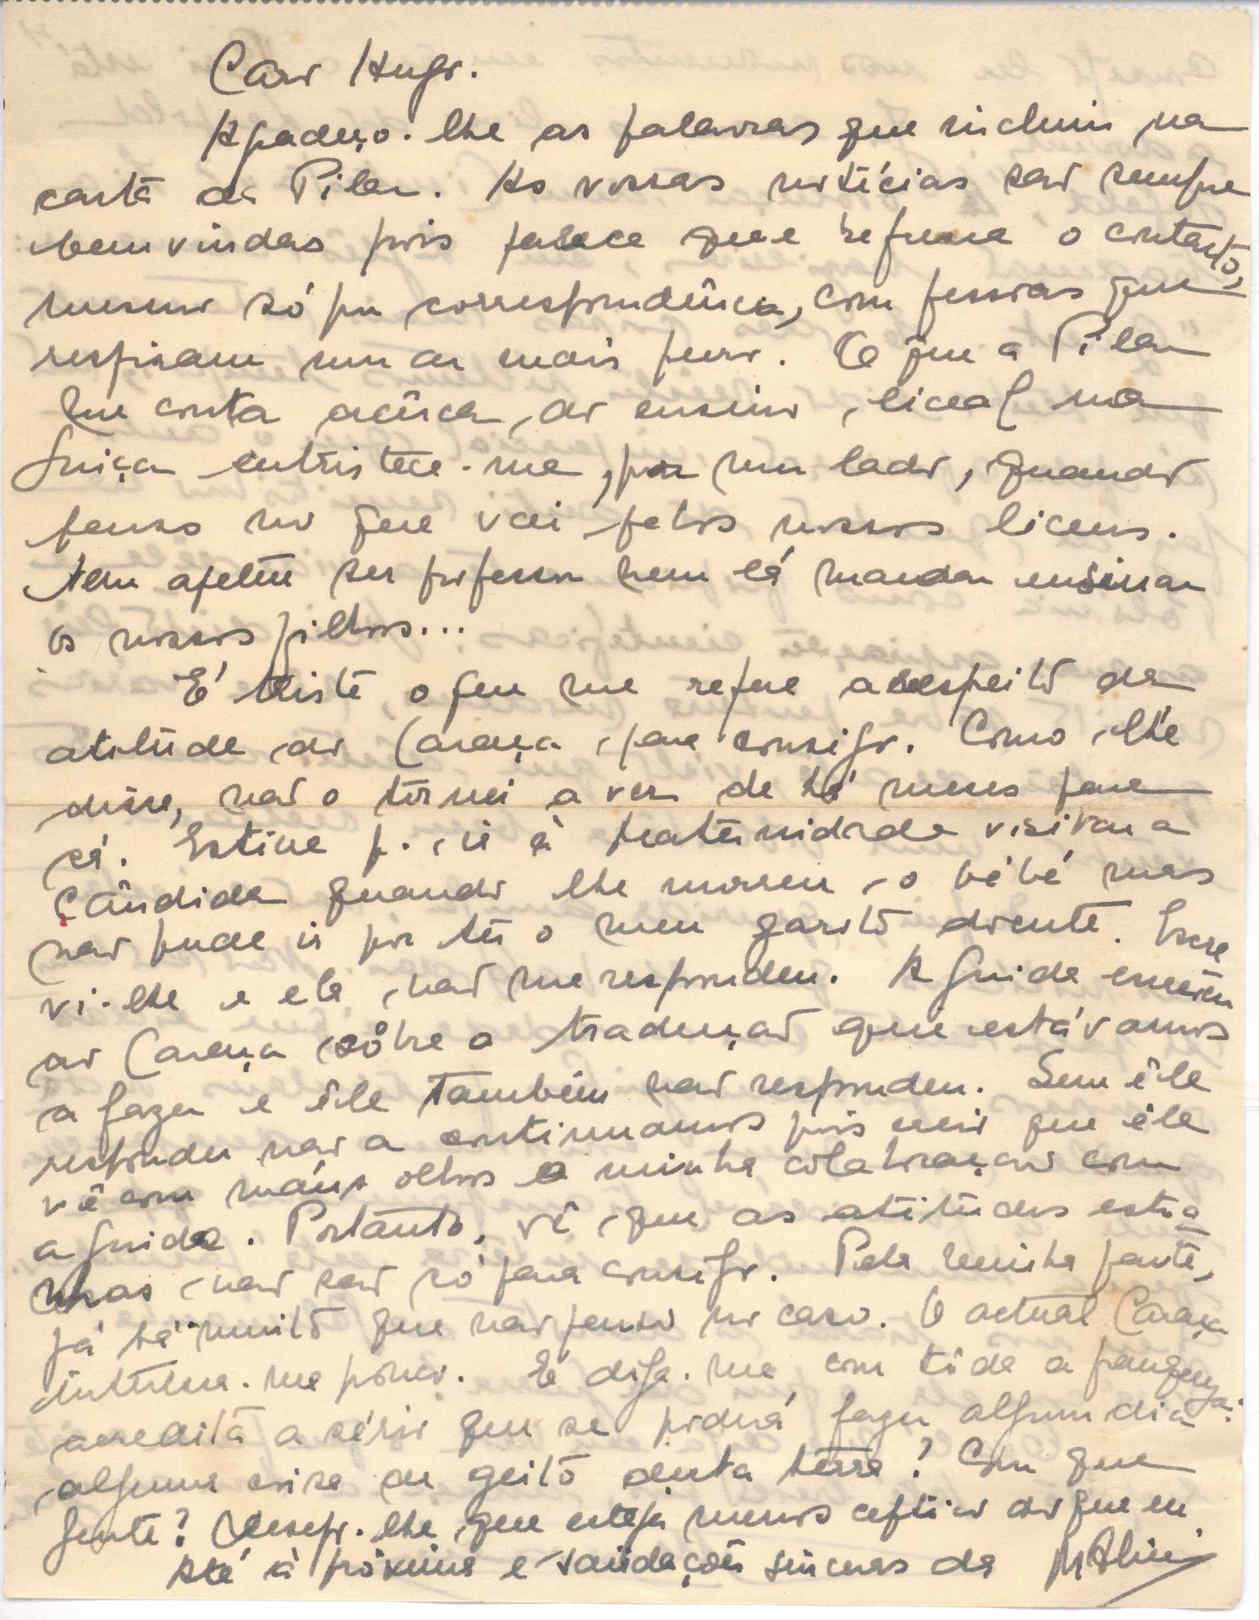 Caro Hugo.
Agradeço-lhe as palavras que incluiu na
carta da Pilar. As vossas notícias são sempre
bemvindas pois parece que refresca o contacto,
mesmo só por correspondência, com pessoas que
respiram um ar mais puro. O que a Pilar
me conta acêrca do ensino liceal na
Suiça entristece-me, por um lado, quando
penso no que vai pelos nossos liceus.
Nem apetece ser professor nem lá mandar ensinar
os nossos filhos...
É triste o que me refere a respeito da
atitude do Caraça para consigo. Como lhe
disse, não o tornei a ver de há meses para
cá. Estive p. ir à Maternidade visitar a
Cândida quando lhe morreu o bébé mas
não pude ir por ter o meu garoto doente. Escre
vi-lhe e ela não me respondeu. A Guida escreveu
ao Caraça sôbre a tradução que estávamos
a fazer e êle também não respondeu. Sem êle
responder não a continuamos pois creio que êle
vê com máus olhos a minha colaboração com
a Guida. Portanto, vê que as atitudes estra
nhas não são só para consigo. Pela minha parte,
já há muito que não penso no caso. O actual Caraça
interessa-me pouco. E diga-me com tôda a franqueza:
acredita a sério que se poderá fazer algum dia
alguma coisa de geito desta terra? Com que
gente? Desejo-lhe que esteja menos céptico do que eu.
Até à próxima e saüdações sinceras da